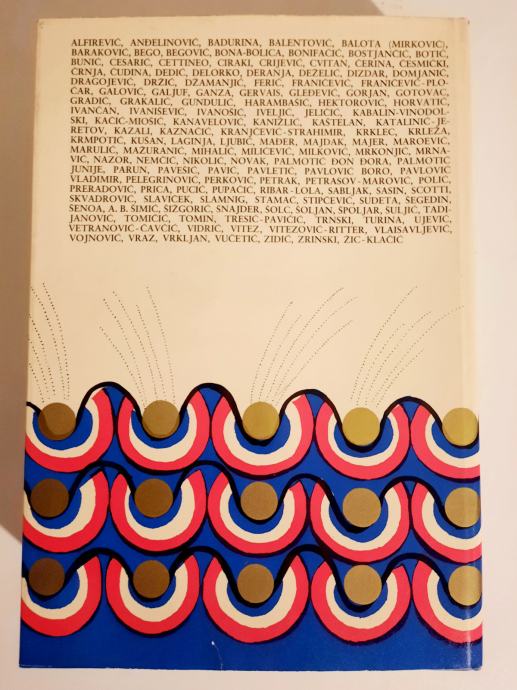 ALFIREVIĆ, ANĐELINOVIĆ, BADURINA, BALENTOVIĆ, BALOTA (MIRKOVIĆ),
BARAKOVIĆ, BEGO, BEGOVIĆ, BONA-BOLICA, BONIFAČIĆ, BOSTJANČIĆ, BOTIĆ,
BUNIĆ, CESARIĆ, CETTINEO, CIRAKI, CRIJEVIĆ, CVITAN, ČERINA, ČESMIČKI,
ČRNJA, ČUDINA, DEDIĆ, DELORKO, DERANJA, DEŽELIĆ, DIZDAR, DOMJANIĆ,
DRAGOJEVIĆ, DRŽIĆ, DŽAMANJIĆ, FERIĆ, FRANIČEVIĆ, FRANIČEVIĆ-PLO-
ČAR, GALOVIĆ, GALJUF, GANZA, GERVAIS, GLEĐEVIĆ, GORJAN, GOTOVAC,
GRADIĆ, GRAKALIĆ, GUNDULIĆ, HARAMBAŠIĆ, HEKTOROVIĆ, HORVATIĆ,
IVANČAN, IVANIŠEVIĆ, IVANOŠIĆ, IVELJIĆ, JELIČIĆ, KABALIN-VINODOL-
SKI, KAČIĆ-MIOŠIĆ, KANAVELOVIĆ, KANIŽLIĆ, KAŠTELAN, KATALINIĆ-JE-
RETOV, KAZALI, KAZNAČIĆ, KRANJČEVIĆ-STRAHIMIR, KRKLEC, KRLEŽA,
KRMPOTIĆ, KUŠAN, LAGINJA, LJUBIĆ, MAĐER, MAJDAK, MAJER, MAROEVIĆ,
MARULIĆ, MAŽURANIĆ, MIHALIĆ, MILIČEVIĆ, MILKOVIĆ, MRKONJIĆ, MRNA-
VIĆ, NAZOR, NEMČIĆ, NIKOLIĆ, NOVAK, PALMOTIĆ ĐON ĐORA, PALMOTIĆ
JUNIJE, PARUN, PAVEŠIĆ, PAVIĆ, PAVLETIĆ, PAVLOVIĆ BORO, PAVLOVIĆ
VLADIMIR, PELEGRINOVIĆ, PERKOVIĆ, PETRAK, PETRASOV-MAROVIĆ, POLIĆ,
PRERADOVIĆ, PRICA, PUCIĆ, PUPAČIĆ, RIBAR-LOLA, SABLJAK, SASIN, SCOTTI,
SKVADROVIĆ, SLAVIČEK, SLAMNIG, STAMAĆ, STIPČEVIĆ, SUDETA, ŠEGEDIN,
ŠENOA, A. B. ŠIMIĆ, ŠIŽGORIĆ, ŠNAJDER, ŠOLC, ŠOLJAN, ŠPOLJAR, ŠULJIĆ, TADI-
JANOVIĆ, TOMIČIĆ, TOMIN, TRESIĆ-PAVIČIĆ, TRNSKI, TURINA, UJEVIĆ,
VETRANOVIĆ-ČAVČIĆ, VIDRIĆ, VITEZ, VITEZOVIĆ-RITTER, VLAISAVLJEVIĆ,
VOJNOVIĆ, VRAZ, VRKLJAN, VUČETIĆ, ZIDIĆ, ZRINSKI, ŽIC-KLAČIĆ